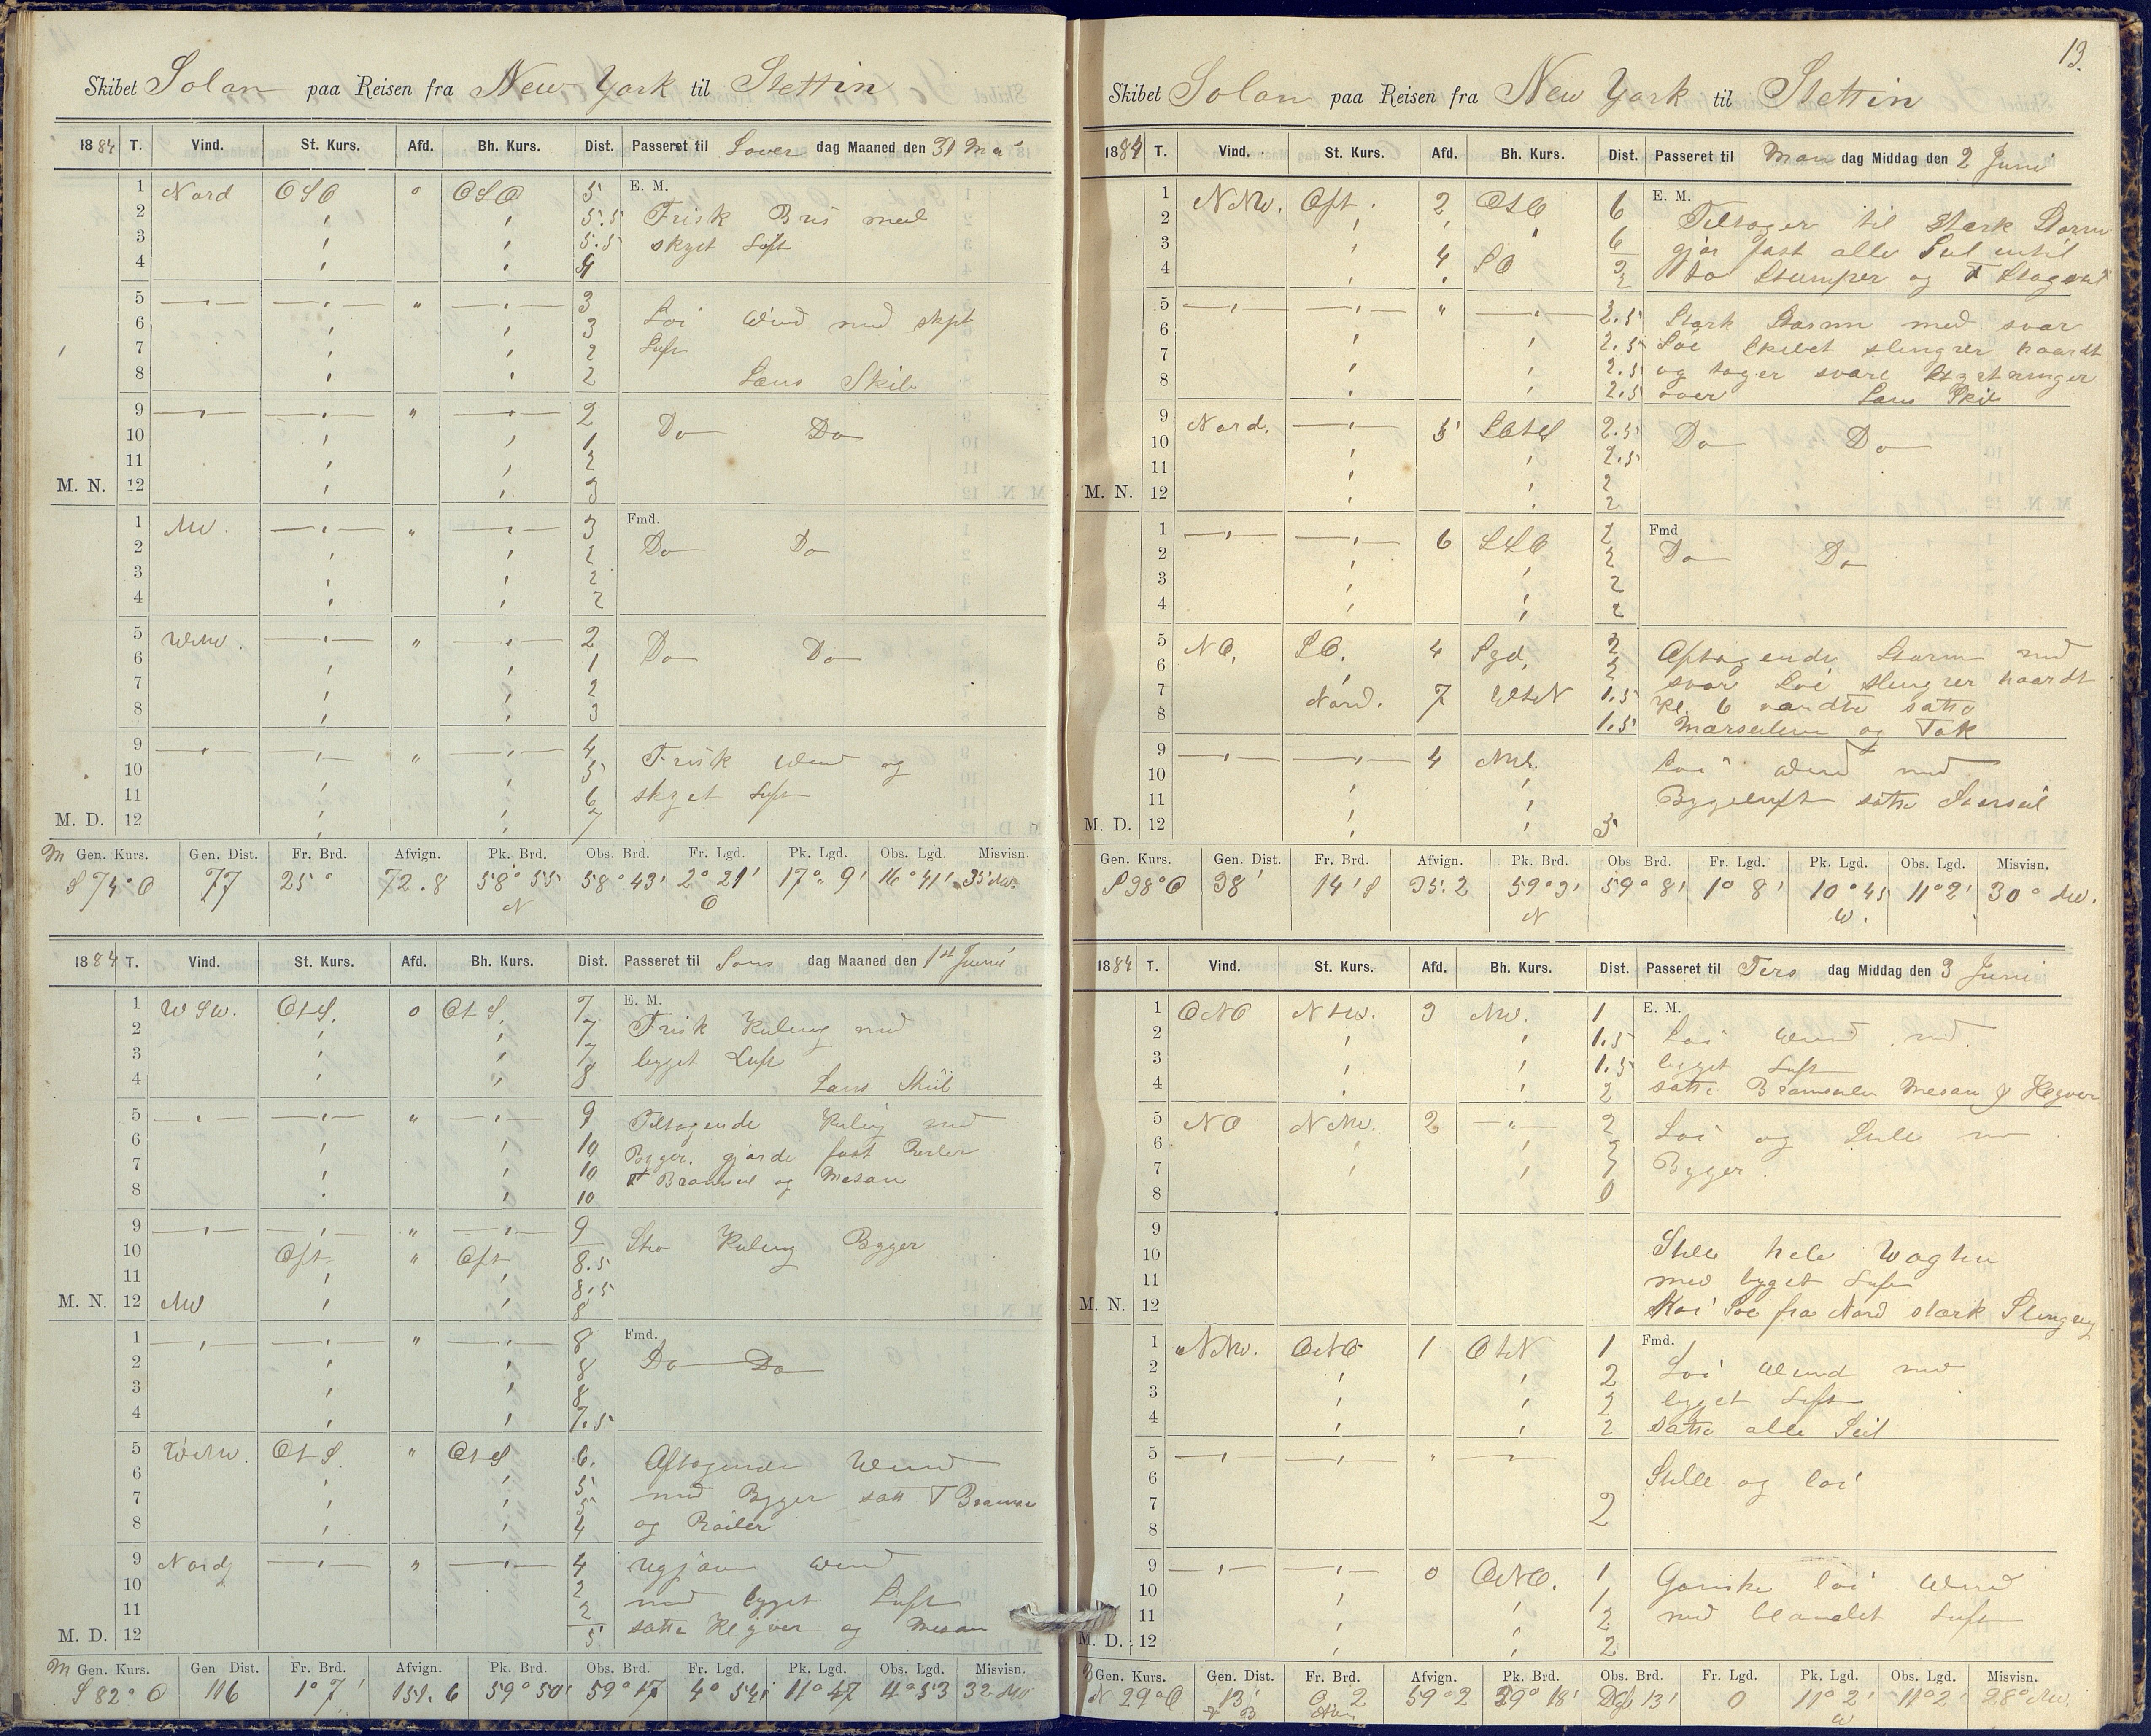 Skibet Solan paa Reisen fra New York til Stettin
1884 T. Vind. St. Kurs. Afd. Bh. Kurs. Dist. Passeret til Löver dag Maaned den 31 Mai
1 Nord OSO 0 OSO 5 E. M.
2 " " 5.5 Frisk Bris med
3 " " 5.5 skyet Luft
4 " " 4
5 — " — — " — " — " — 3
6 " " 3 Löi Wind med skyt
7 " " 2 Luft
8 " " 2 Læns Skib
9 — " — — " — " — " — 2
10 " " 1 Do Do
11 " " 2
M. N. 12 " " 3
1 NW. — " — " — " — 3 Fmd.
2 " " 2 Do Do
3 " " 2
4 " " 2
5 WNW. — " — " — " — 2
6 " " 1 Do Do
7 " " 2
8 " " 3
9 — " — — " — " — " — 4
10 " " 5 Frisk Wind og
11 " " 6 skyet Luft
M. D. 12 " " 7
M Gen. Kurs. Gen. Dist. Fr. Brd. Afvign. Pk. Brd. Obs. Brd. Fr. Lgd. Pk. Lgd. Obs. Lgd. Misvisn.
S 74° O 77 25° 72.8 58° 55' 58° 43' 2° 21' 17° 9' 16° 41' 35° NW.
N O
1884 T. Vind. St. Kurs. Afd. Bh. Kurs. Dist. Passeret til Söns dag Maaned den 1st Juni
1 WSW. OtS. 0 OtS. 7 E. M.
2 " " 7 Frisk Kuling med
3 " " 7 bygget Luft
4 " " 8 Læns Skib
5 — " — — " — " — " — 9 Tiltagende Kuling med
6 " " 10 Byger. gjorde fast Röiler
7 " " 10 F Bramseil og Mesan
8 " " 10
9 — " — — " — " — " — 9
10 Ost " Ost 8.5 Stiv Kuling Bygger
11 " " 8.5
M. N. 12 NW " " 8
1 — " — — " — " — " — 8 Fmd.
2 " " 8 Do Do
3 " " 8
4 " " 7.5
5 WNW. OtS. " OtS 6.
6 " " 5 Aftagende Wind
7 " " 5 med Bygger satte F Bramse
8 " " 4 og Röiler
9 Nord — " — " — " — 4 ugjævn Wind
10 2 med bygget Luft
11 2 satte Klyver og Mesan
M. D. 12 5
M Gen. Kurs. Gen Dist. Fr. Brd. Afvign. Pk. Brd. Obs. Brd. Fr. Lgd. Pk. Lgd. Obs. Lgd. Misvisn.
S 82° O 116 1° 7' 151.6 59° 50' 59° 17 4° 54' 11° 47 11° 53 32 NW
13.
Skibet Solan paa Reisen fra New York til Stettin
1884 T. Vind. St. Kurs. Afd. Bh. Kurs. Dist. Passeret til Man dag Middag den 2 Juni
1 NNW. Ost. 2 OtS 6 E. M.
2 " " " Tiltager til stærk Storm
3 " 4 SO 6 gjör fast alle Seil intil
4 " " 2 to Stumper og F Stagseil
5 — " — — " — " — " — 2.5 Stærk Storm med svær
6 " " 2.5 Söe Skibet slengrer haardt
7 " " 2.5 og tager svære Styrtninger
8 " " 2.5 over Læns Skib
9 Nord. — " — 5 SOtS 2.5
10 " " 2.5 Do Do
11 " " 2
M. N. 12 " " 2
1 — " — — " — 6 SSO 2 Fmd
2 " " 2 Do Do
3 " " 2
4 " " 2
5 NO. SO. 4 Syd. 2 Aftagende Storm med
6 " 2 svær Söe slengrer haardt
7 Nord. 7 WtN 1.5 Kl. 6 vændte satte
8 1.5 Mærseilerne og Fok
9 — " — — " — 4 NW. Löi Wind med
10 " " Bygeluft satte Storseil
11 " "
M. D. 12 " " 5
Gen. Kurs. Gen. Dist. Fr. Brd. Afvign. Pk. Brd. Obs Brd. Fr. Lgd. Pk. Lgd. Obs. Lgd. Misvisn.
S 98° O 38' 14' S 35.2 59° 3' 59° 8' 1° 8' 10° 45 11° 2' 30° NW.
N W.
1884 T. Vind. St. Kurs. Afd. Bh. Kurs. Dist. Passeret til Tirs dag Middag den 3 Juni
1 ONO NtW. 3 NW. 1 E. M.
2 " " 1.5 Löi Wind med
3 " " 1.5 bygget Luft
4 " " 2 satte Bramseiler Mesan & Klyver
5 NO NNW. 2 — " — 2 Löi og Stille med
6 " " 2 Bygger.
7 " " 1
8 0
9
10 Stille hele Wagten
11 med bygget Luft
M. N. 12 Höi Söe fra Nord stærk Slengring
1 NNW. ONO 1 OtN 1 Fmd.
2 " " 2 Löi Wind med
3 " " 2 bygget Luft
4 " " 2 satte alle Seil
5 — " — — " — " — " —
6 Stille og löi
7 2
8
9 — " — — " — 0 ONO. 1 Ganske löi Wind
10 " " 1 med blandet Luft
11 " " 2
M. D. 12 " " 2
Gen. Kurs. Gen. Dist. Fr. Brd. Afvign. Pk. Brd. Obs. Brd. Fr. Lgd. Pk. Lgd. Obs. Lgd. Misvisn.
N 29° O 13' 2 59° 2 59° 18' 13' 0 11° 2' 11° 2' 28° NW.
W